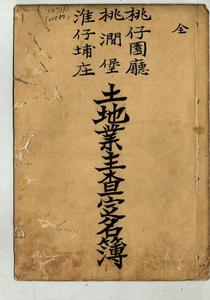 全
桃仔園廳
桃澗堡
淮仔埔庄
土地業主查定名簿